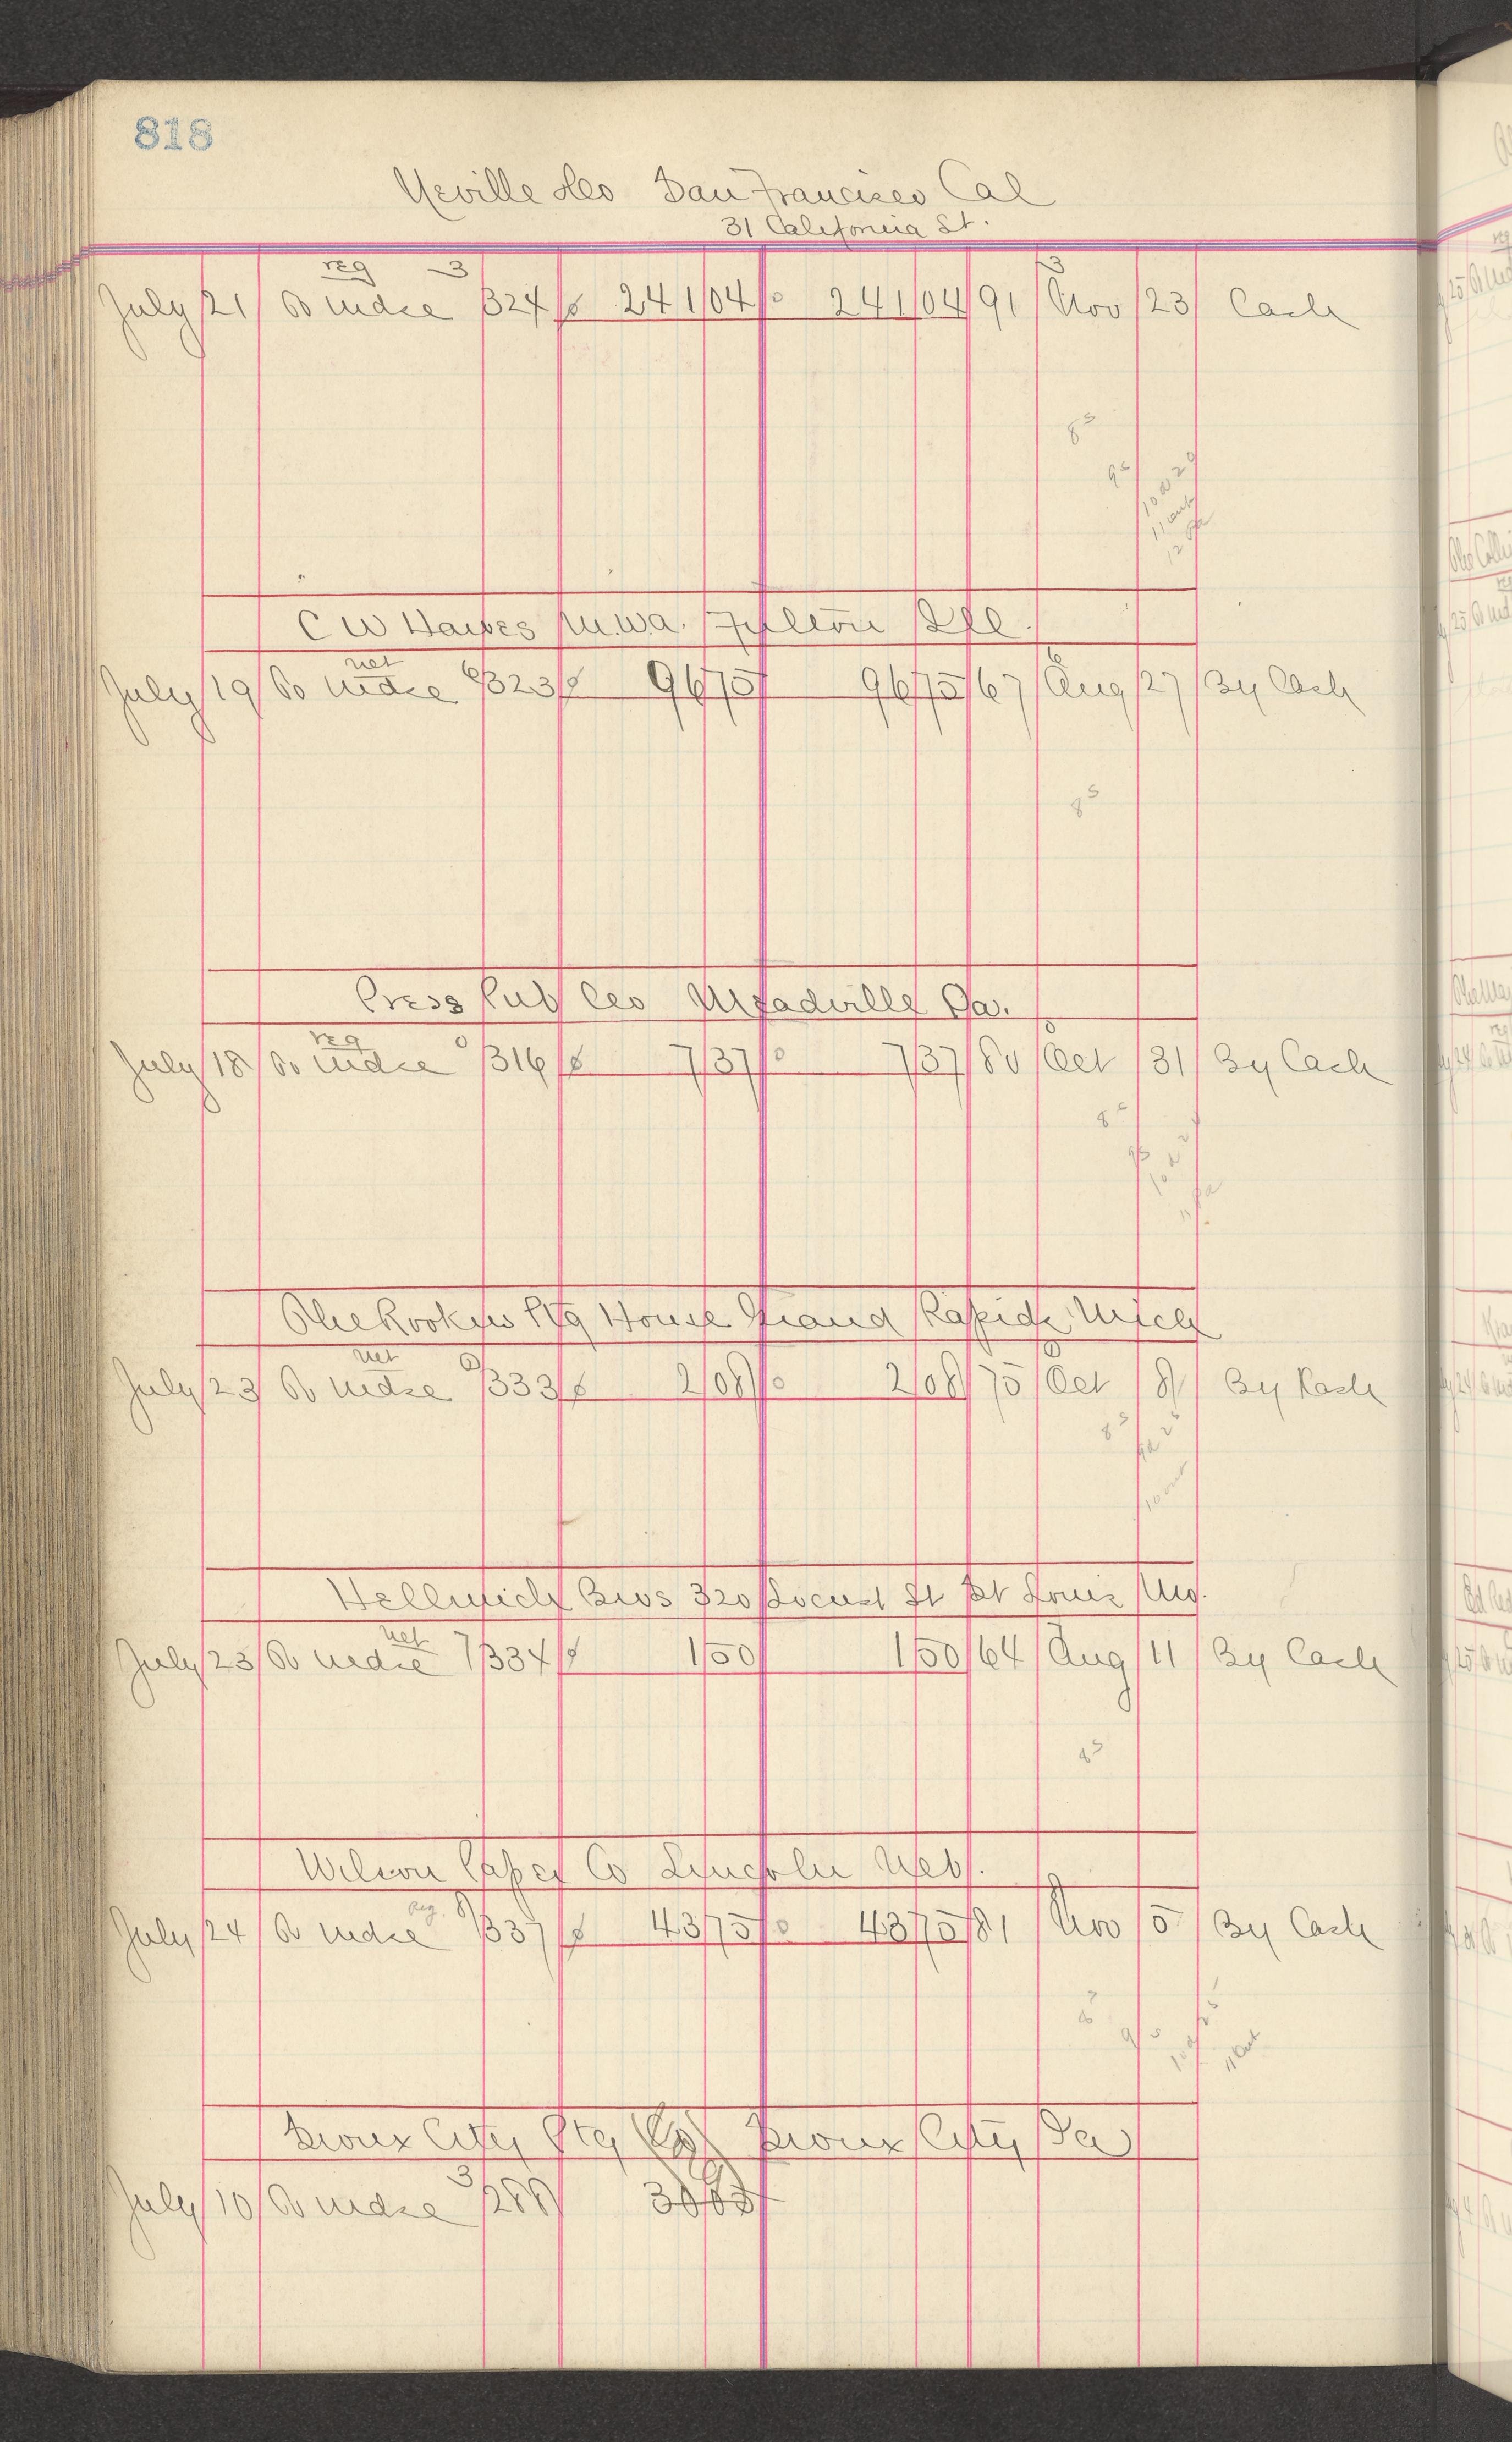 818
Neville & Co San Francisco Cal
31 California St.
reg 3 3
July 21 To mdse 324 241 04 241 04 91 Nov 23 Cash
8 5
9 5
10 a 29
11 out
12 pa
C W Hawes M.W.A. Fulton Ill.
net 6 6
July 19 To mdse 323 96 75 96 75 67 Aug 27 By Cash
8 5
Press Pub Co Meadville Pa.
reg 0 0
July 18 To mdse 316 7 37 7 37 80 Oct 31 By Cash
8
9 5
10
The Hov Ptg House Grand Rapids Mich
net 0 0
July 23 To mdse 333 2 08 2 08 75 Oct 8 By Cash
8 5
10 out
Hellmich Bros 320 Locust St St Louis Mo.
net 7
July 23 To mdse 334 1 50 1 50 64 Aug 11 By Cash
8 5
Wilson Paper Co Lincoln Neb.
reg. 8
July 24 To mdse 337 43 75 43 75 81 Nov 5 By Cash
8
9 5
11 out
Sioux City Ptg Co Sioux City Ia
3
July 10 To mdse 288